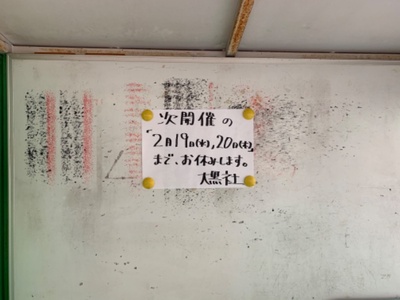 次開催の
「2月19日(水),20日(木)
まで、お休みします。
大黒社